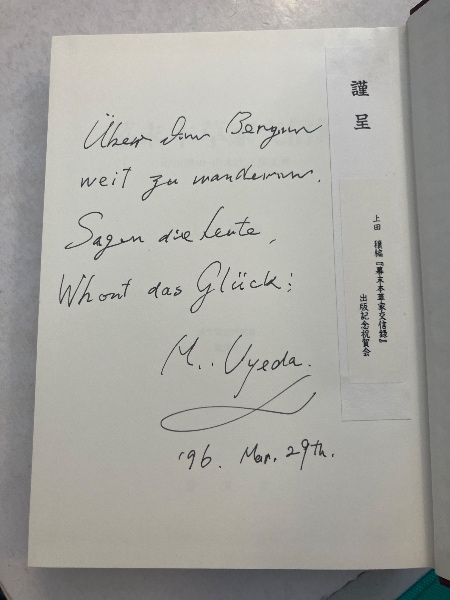 Über den Bergen
weit zu wandern.
Sagen die Leute,
Whont das Glück:
M. Uyeda.
'96. Mar. 29th.
謹呈
上田 穣編『幕末本草家交信録』
出版記念祝賀会